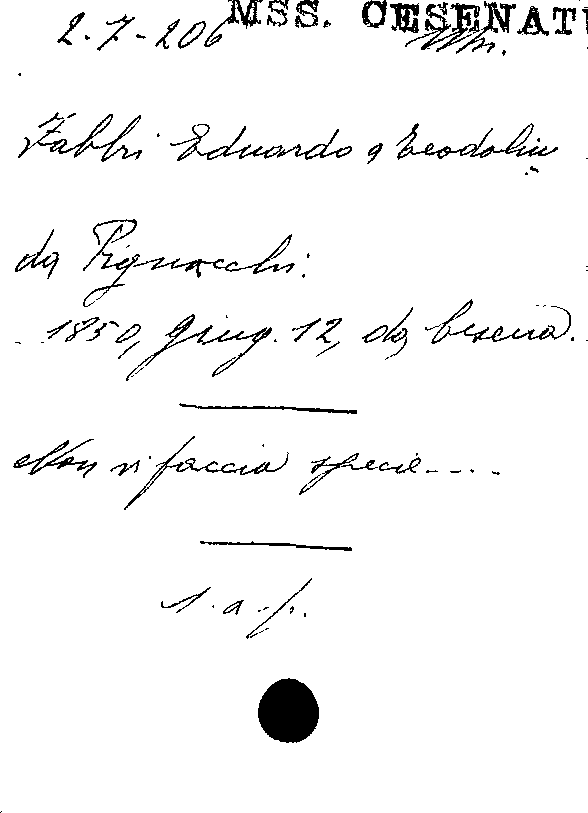 MSS. CESENAT
2-7-206
Fabbri Eduardo a Teodolin
da Pignocchi.
1850, giug. 12, da Cesena.
Non vi faccia specie....
1. a. f.